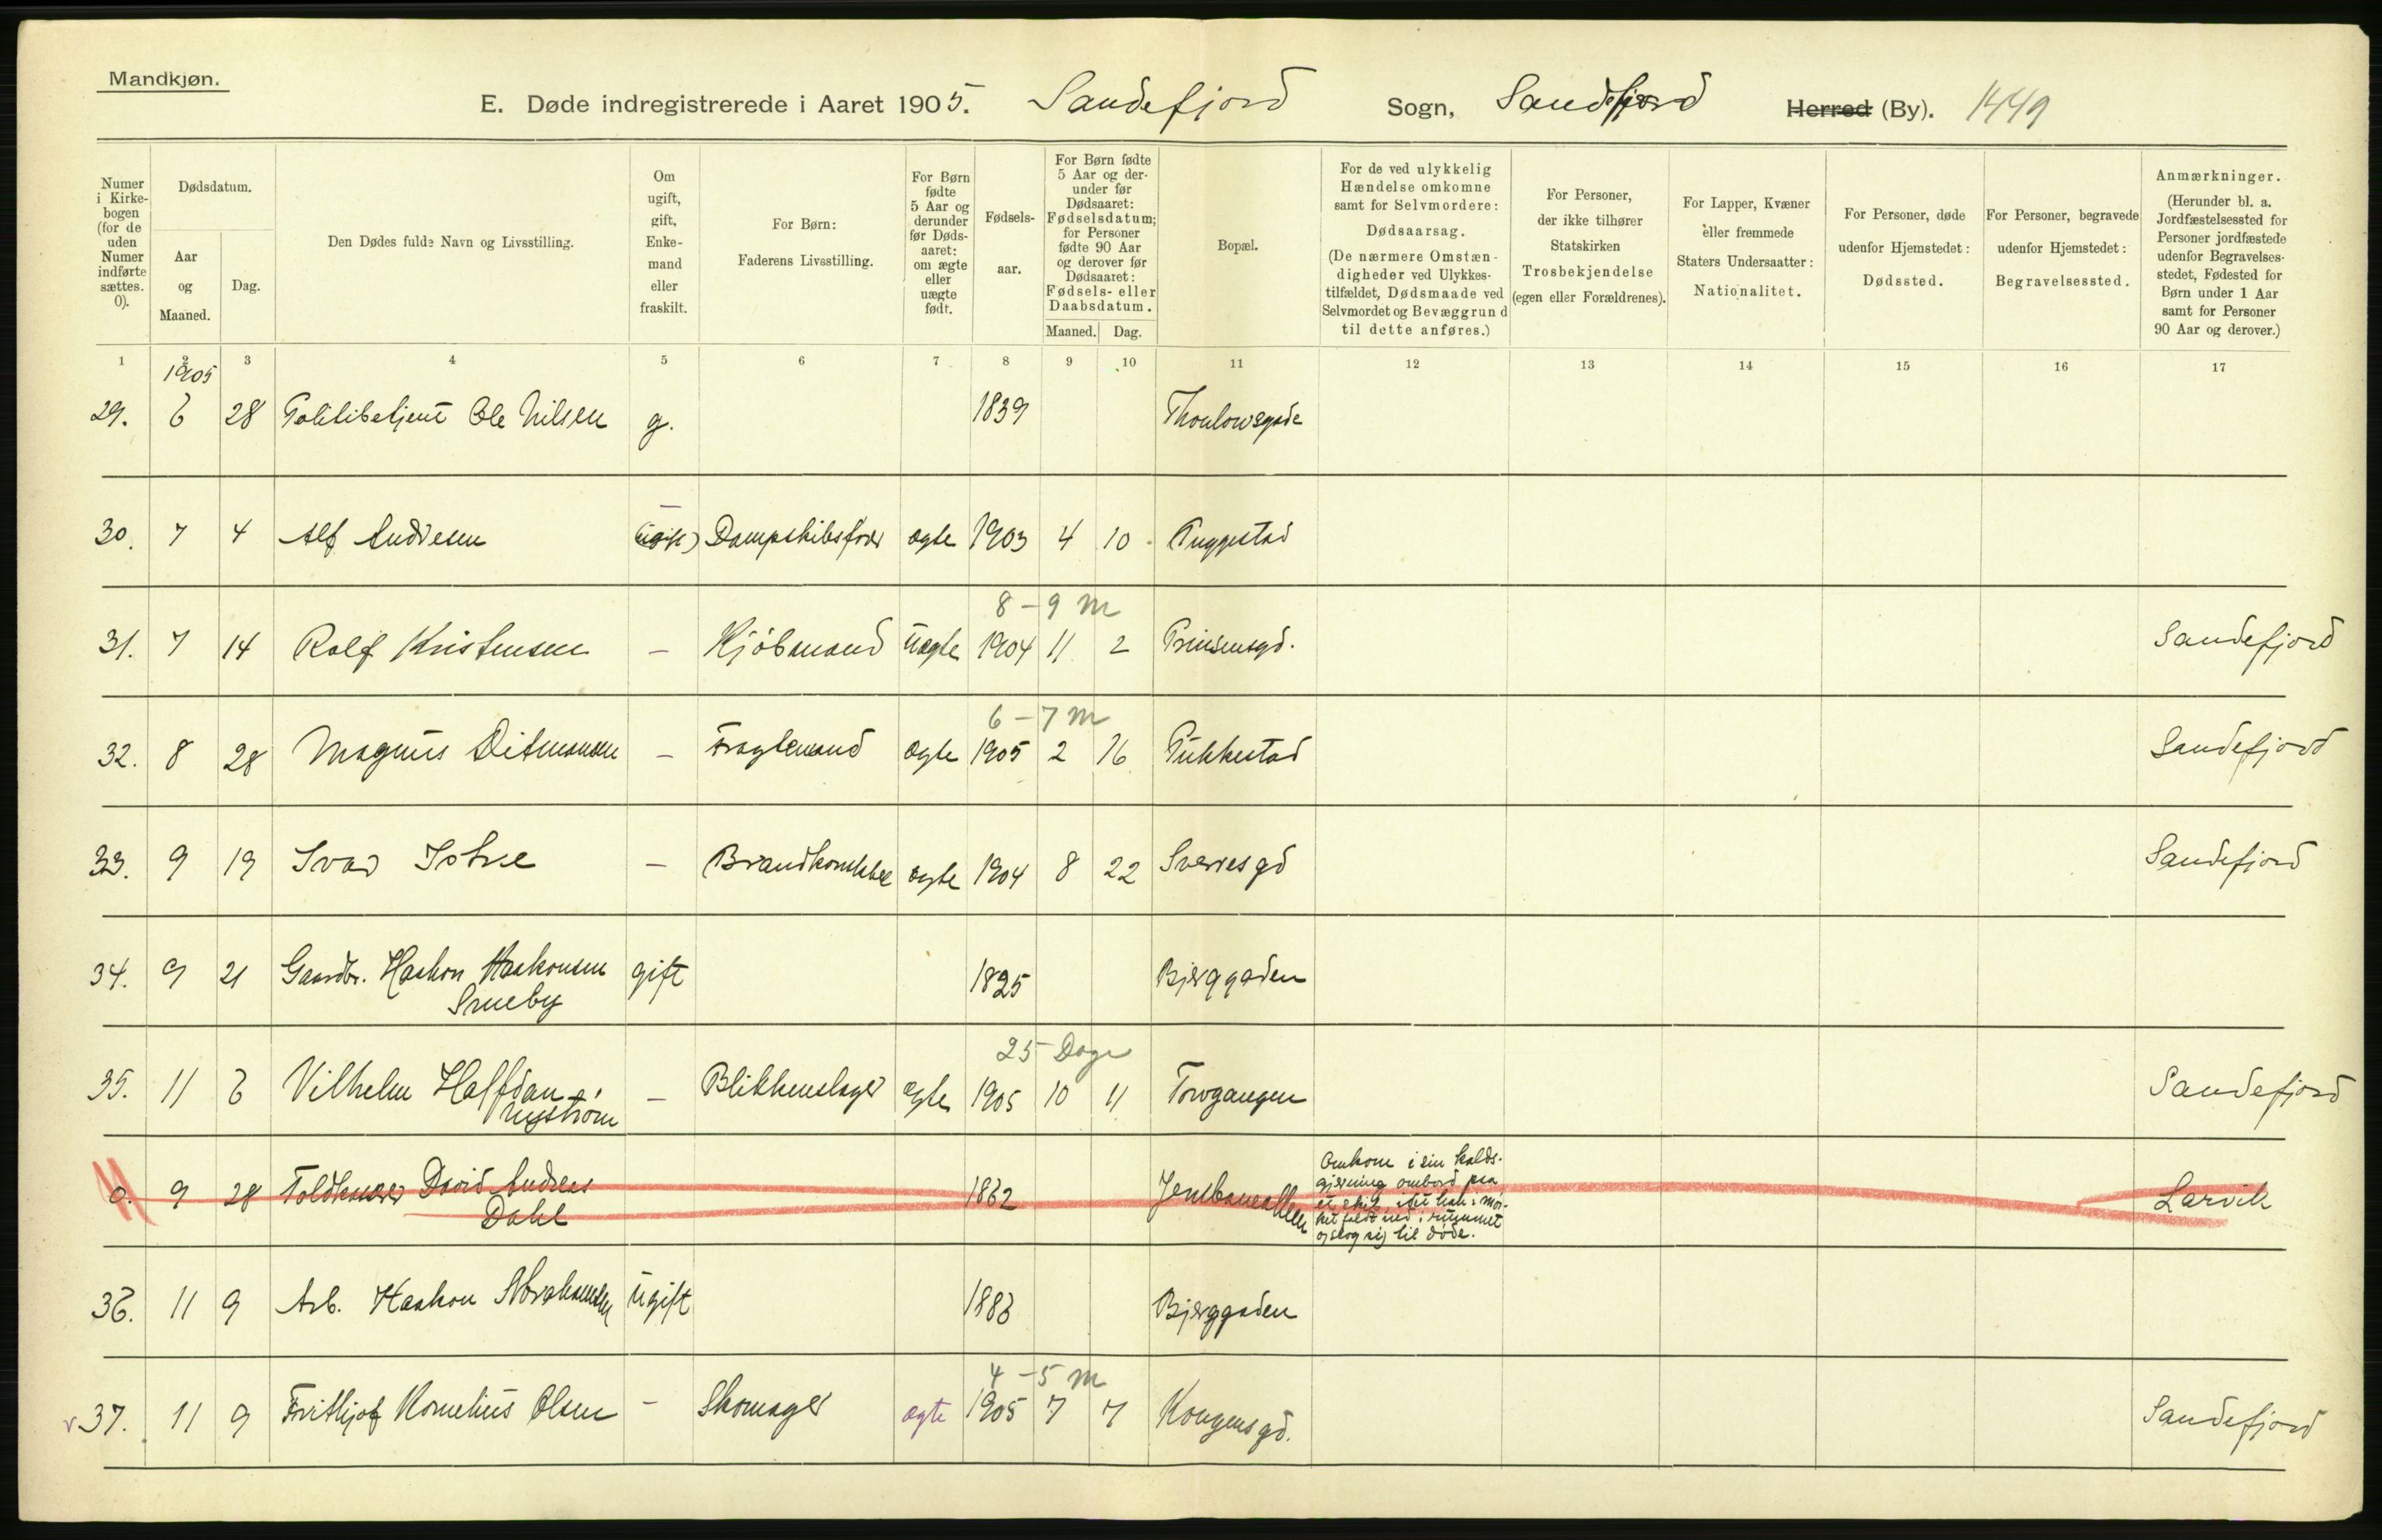 Mandkjøn.
E. Døde indregistrerede i Aaret 1905. Sandefjord Sogn, Sandefjord Herred (By). 1449
Numer i Kirkebogen (for de uden Numer indførte sættes. 0).
Dødsdatum.
Aar og Maaned.
Dag.
Den Dødes fulde Navn og Livsstilling.
Om ugift, gift, Enkemand eller fraskilt.
For Børn: Faderens Livsstilling.
For Børn fødte 5 Aar og derunder før Dødsaaret: om ægte eller uægte født.
Fødselsaar.
For Børn fødte 5 Aar og derunder før Dødsaaret: Fødselsdatum; for Personer fødte 90 Aar og derover før Dødsaaret: Fødsels- eller Daabsdatum.
Maaned. Dag.
Bopæl.
For de ved ulykkelig Hændelse omkomne samt for Selvmordere: Dødsaarsag. (De nærmere Omstændigheder ved Ulykkestilfældet, Dødsmaade ved Selvmordet og Bevæggrund til dette anføres.)
For Personer, der ikke tilhører Statskirken Trosbekjendelse (egen eller Forældrenes).
For Lapper, Kvæner eller fremmede Staters Undersaatter: Nationalitet.
For Personer, døde udenfor Hjemstedet: Dødssted.
For Personer, begravede udenfor Hjemstedet: Begravelsessted.
Anmærkninger. (Herunder bl. a. Jordfæstelsessted for Personer jordfæstede udenfor Begravelsesstedet, Fødested for Børn under 1 Aar samt for Personer 90 Aar og derover.)
1 2 3 4 5 6 7 8 9 10 11 12 13 14 15 16 17
1905
29. 6 28 Politibetjent Ole Nilsen g. 1839 Thoulowsgade
30. 7 4 Alf Andresen (ugift) Dampskibsfører ægte 1903 4 10 Puggestad
8-9 m
31. 7 14 Rolf Kristensen - Kjøbmand uægte 1904 11 2 Prinsensgd. Sandefjord
6-7 m
32. 8 28 Magnus Ditmansen - Fragtemand ægte 1905 2 16 Pukkestad Sandefjord
33. 9 19 Ivar - ægte 1904 8 22 Sverresgd Sandefjord
34. 9 21 Gaardbr. Haakon Haakonsen gift 1825 Bjerggaden
25 Dage
35. 11 6 Vilhelm Halfdan - Blikkenslager ægte 1905 10 11 Torvgangen Sandefjord
Nystrøm
0. 9 28 David Andreas 1862 Jernbanealleen Omkom i sin Kalds- Larvik
Dahl gjerning ombord paa
et skib, idet han i mør-
ket faldt ned i rummet
og slog sig til døde.
36. 11 9 Arb. Haakon Abrahamsen ugift 1886 Bjerggaden
4-5 m
v 37. 11 9 Frithjof Kornelius Olsen - Skomager ægte 1905 7 7 Kongensgd. Sandefjord